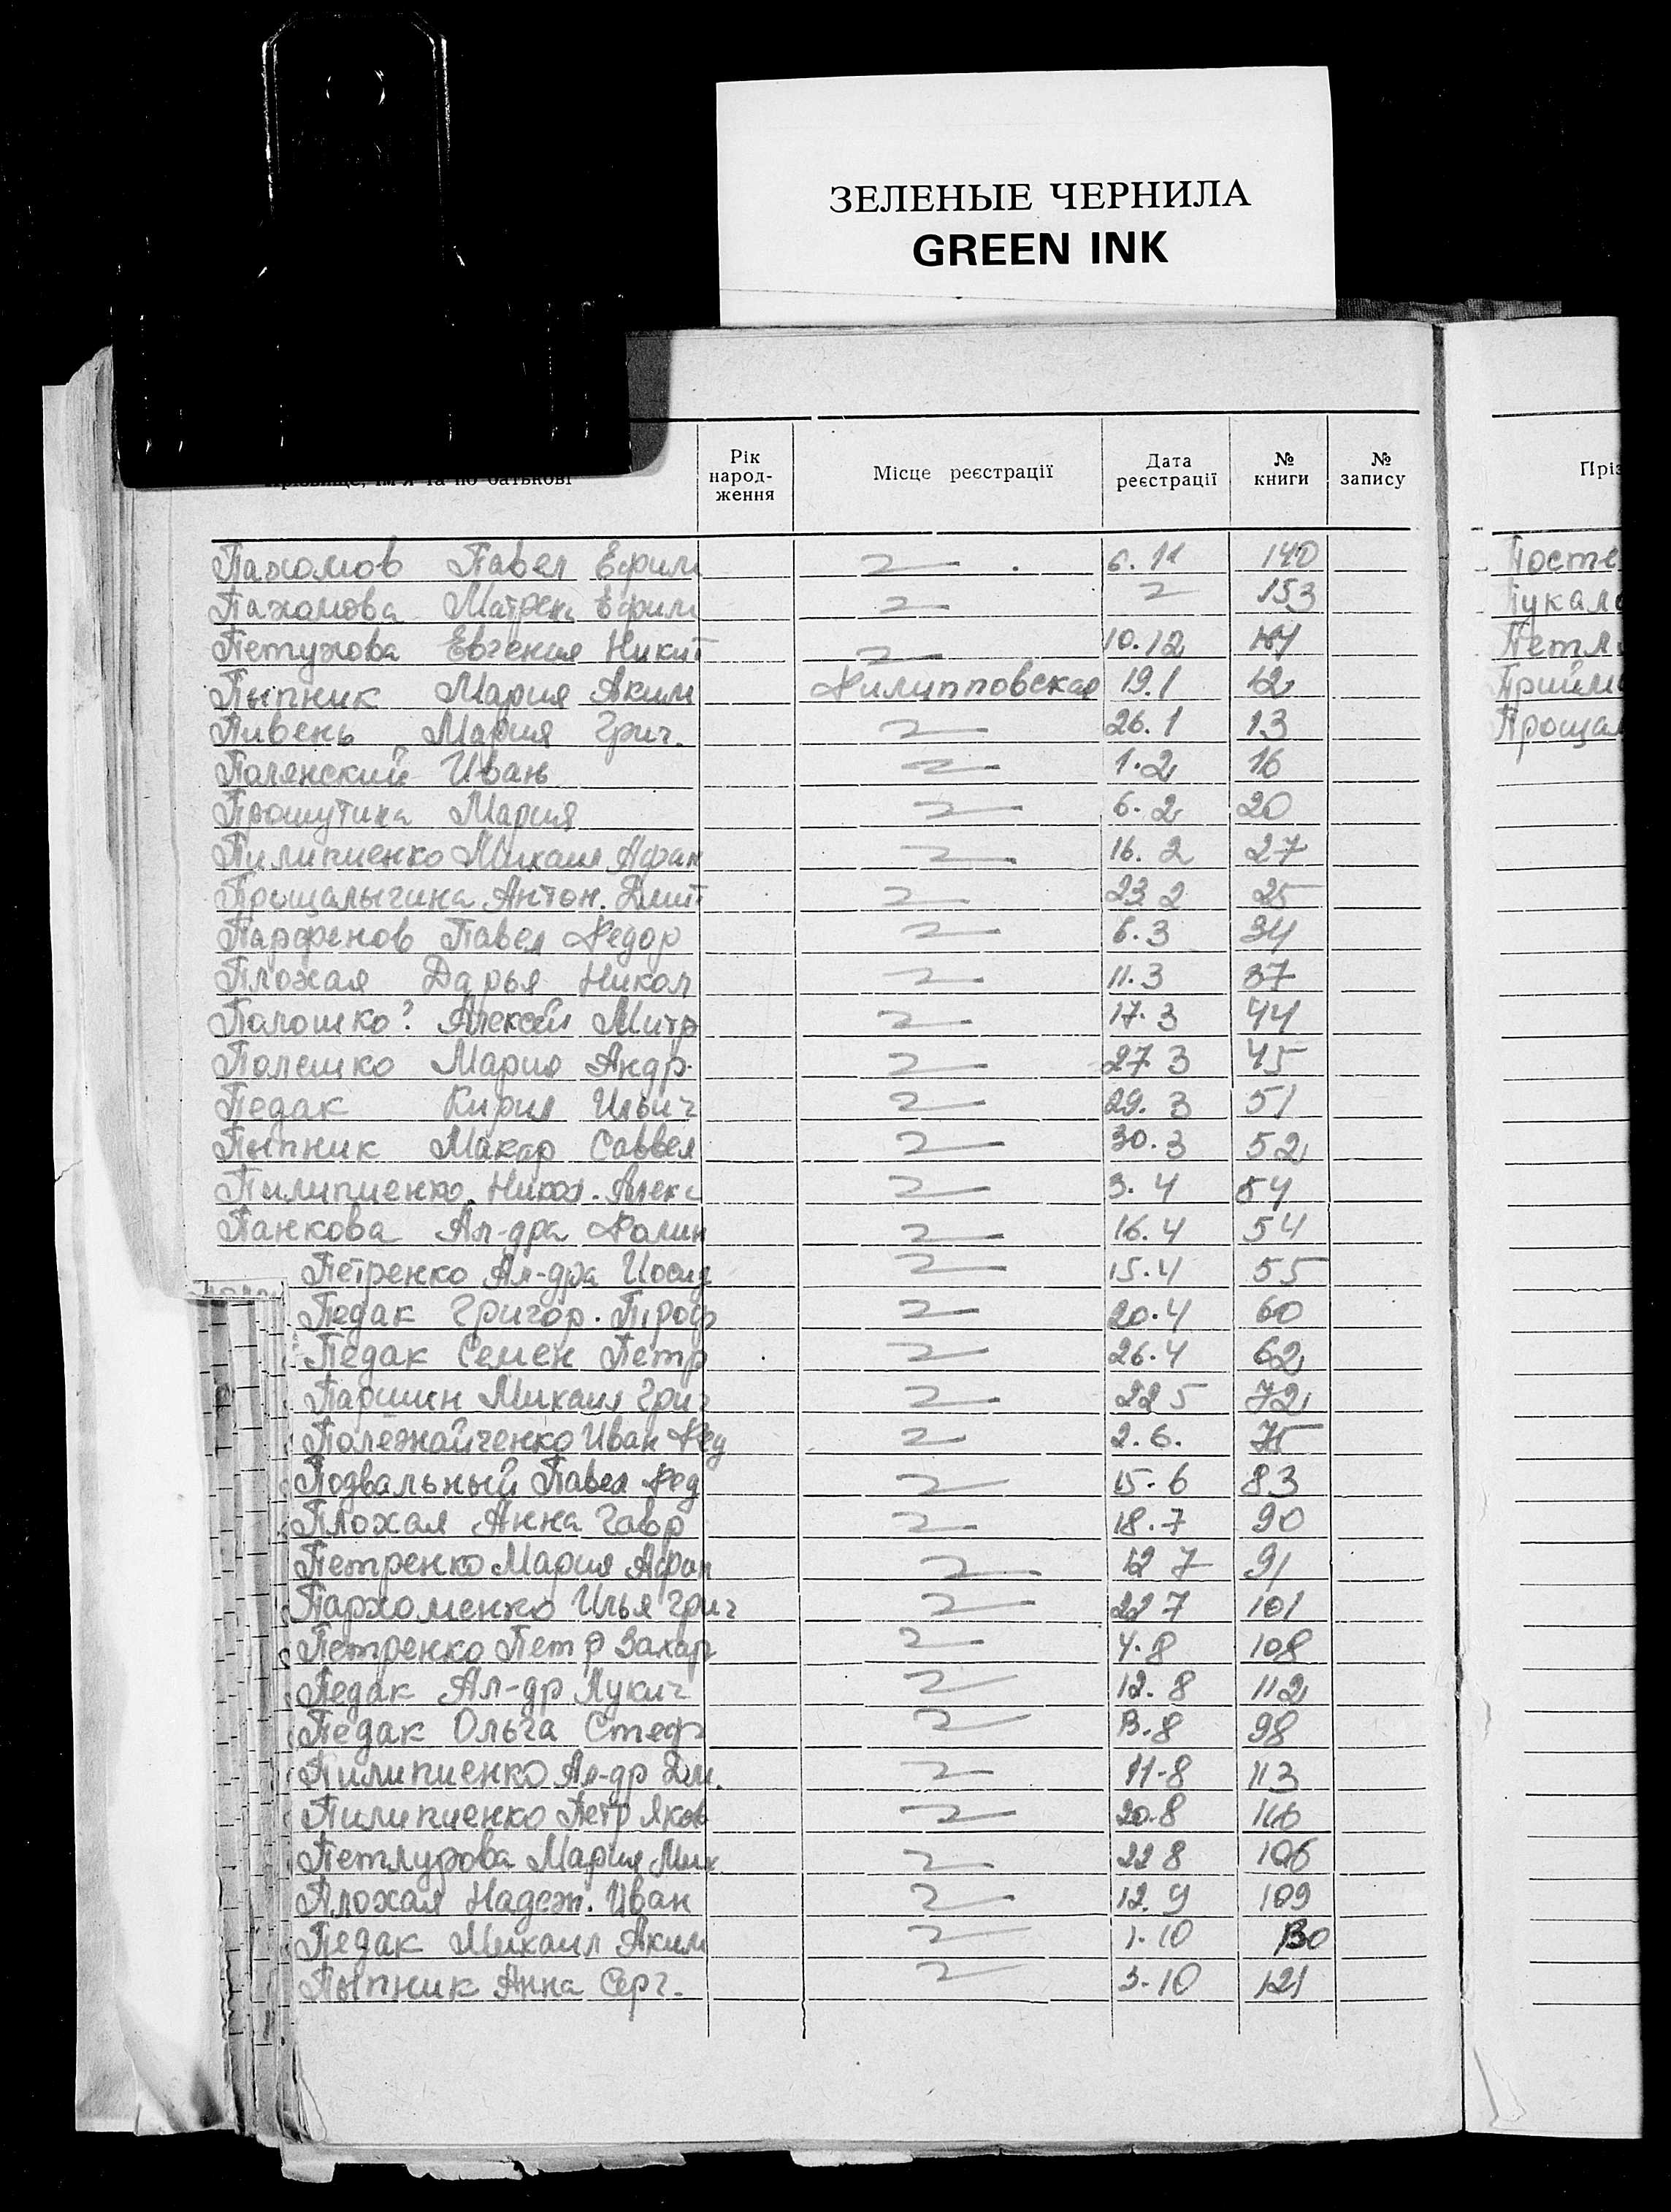 ЗЕЛЕНЫЕ ЧЕРНИЛА
GREEN INK
Прізвище, ім'я та по батькові Рік народ-ження Місце реєстрації Дата реєстрації № книги № запису
Пахомов Павел Ефим 6.11 140
Пахомова Матрена Ефим 153
Петухова Евгения Никит 10.12
Пыпник Мария Аким Филипповская 19.1 12
Пивень Мария Григ. 26.1 13
Полянский Иван 1.2 16
Прошутина Мария 6.2 20
Пилипиенко Михаил Афан 16.2 27
Прощалыгина Антон. Дмит 23 2 25
Парфенов Павел Федор 6.3 34
Плохая Дарья Никол 11.3 37
Полошко? Алексей Митр 17.3 44
Полешко Мария Андр. 27 3 45
Педак Кирил Ильич 29.3 51
Пыпник Макар Саввел 30.3 52
Пилипиенко Никол. Алекс 3.4 54
Панкова Ал-дра Фалин 16.4 54
Петренко Ал-дра Иосиф 15.4 55
Педак Григор. Проф 20.4 60
Педак Семен Петр 26.4 62
Паршин Михаил Григ 22 5 72
Полежайченко Иван Фед 2.6. 75
Подвальный Павел Фед 15.6 83
Плохая Анна Гавр 18.7 90
Петренко Мария Афан 12 7 91
Пархоменко Илья Григ 22 7 101
Петренко Петр Захар 4.8 108
Педак Ал-др Лукич 12.8 112
Педак Ольга Стеф 13.8 98
Пилипиенко Ал-др Дм. 11-8 113
Пилипиенко Петр Яков 20.8 116
Петлурова Мария Мих 22 8 106
Плохая Надеж. Иван 12.9 109
Педак Михаил Аким 1.10 130
Пыпник Анна Серг. 3-10 121